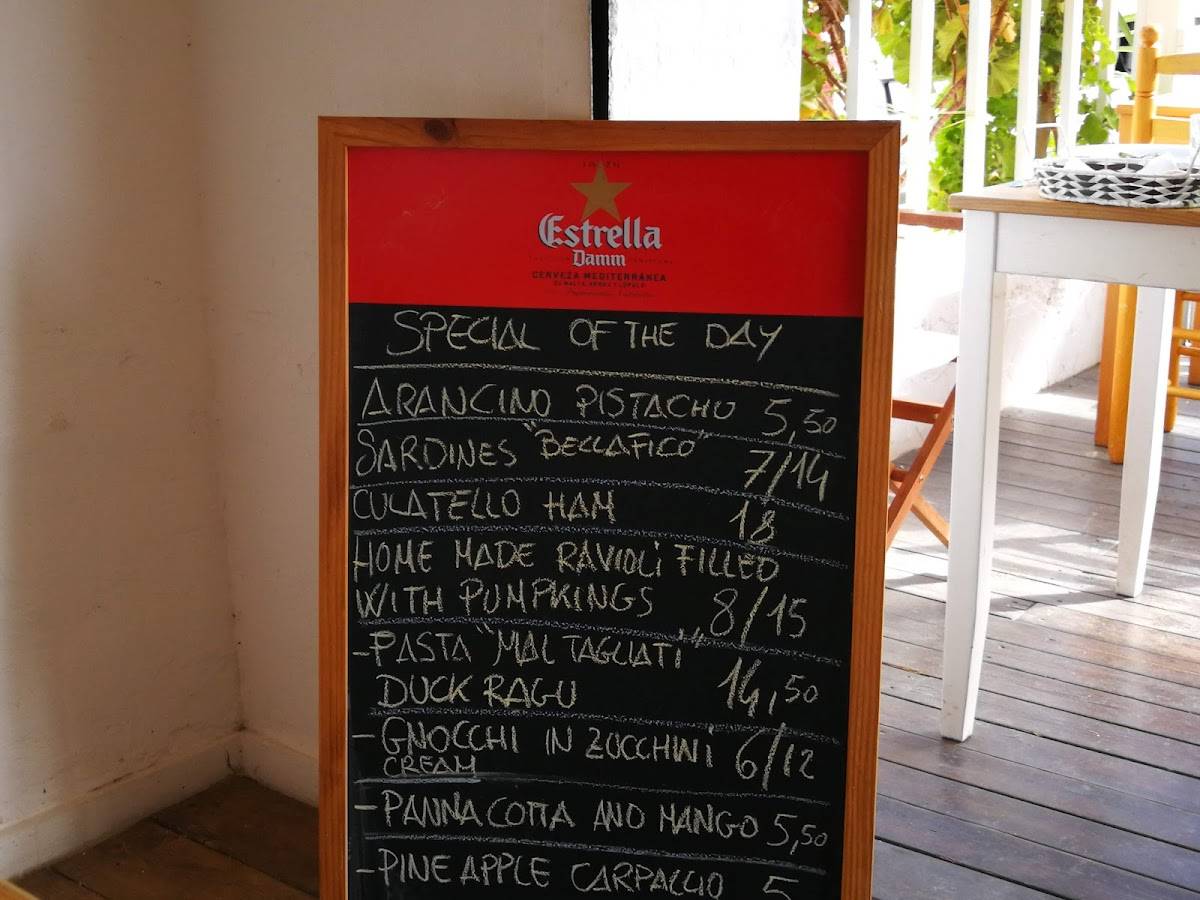 Estrella
Damm
CERVEZA MEDITERRÁNEA
SPECIAL OF THE DAY
ARANCINO PISTACHO 5,50
SARDINES "BECCAFICO" 7/14
CULATELLO HAM 18
HOME MADE RAVIOLI FILLED
WITH PUMPKINGS 8/15
-PASTA "MAL TAGLIATI"
DUCK RAGU 14,50
-GNOCCHI IN ZUCCHINI 6/12
CREAM
-PANNA COTTA AND MANGO 5,50
-PINEAPPLE CARPACCIO 5